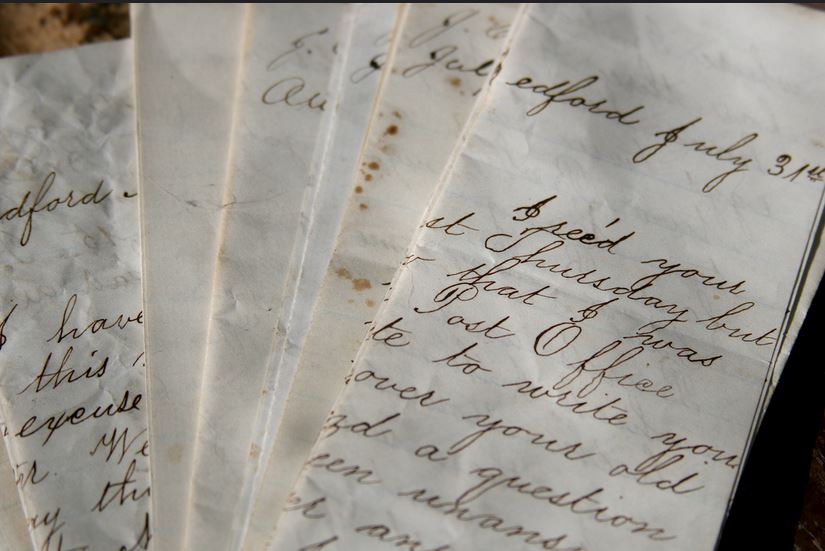 dford
I have
this
excuse
We
Au
Jul
edford July 31st
I rec'd your
st Thursday but
that I was
Post Office
te to write you
over your old
a question
een unans